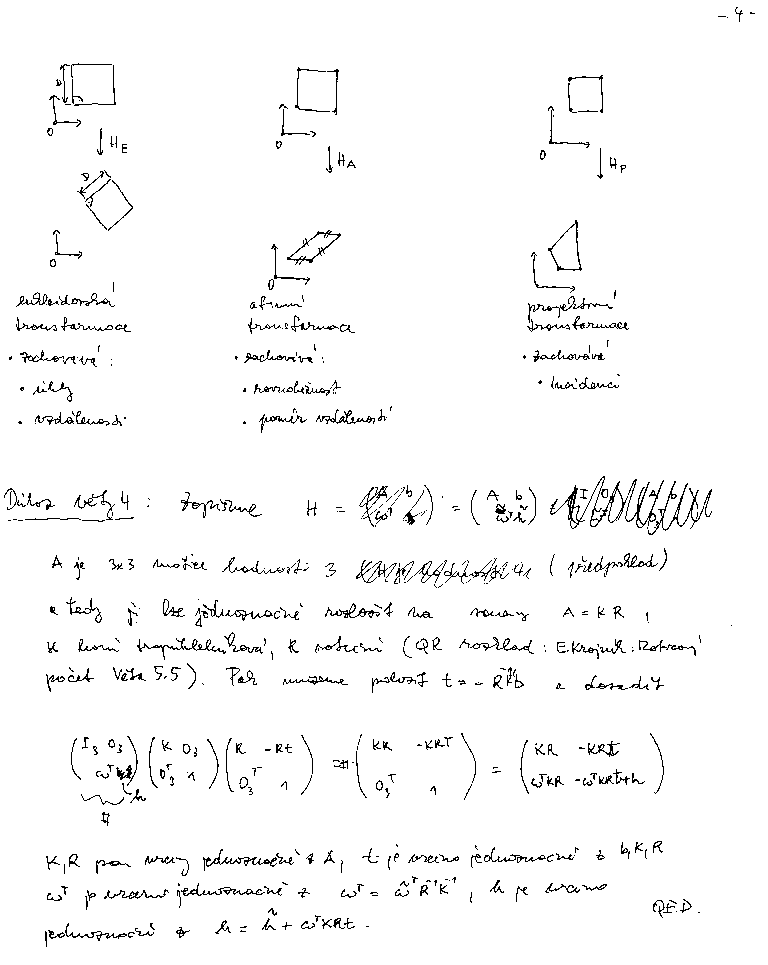 - 4 -
O
H_E
O
O
H_A
O
O
H_P
eukleidovská
transformace
• zachovává:
• úhly
• vzdálenosti
afinní
transformace
• zachovává:
• rovnoběžnost
• poměr vzdáleností
projektivní
transformace
• zachovává
• incidenci
Důkaz věty 4 : zapišme H = = ( A b ω̃ᵀ h̃ )
A je 3x3 matice hodnosti 3 (předpoklad)
a tedy ji lze jednoznačně rozložit na A = K R ,
K horní trojúhelníková, R rotační (QR rozklad : E. Krajník : Maticový
počet Věta 5.5). Pak můžeme položit t = - R⁻¹K⁻¹b a dosadit
( I₃ O₃ ωᵀ h ) ( K O₃ O₃ᵀ 1 ) ( R -Rt O₃ᵀ 1 ) = ( KR -KRT O₃ᵀ 1 ) = ( KR -KRt ωᵀKR -ωᵀKRt+h )
K, R jednoznačně z A, t je určeno jednoznačně z b, K, R
ωᵀ je určeno jednoznačně z ωᵀ = ω̃ᵀ R⁻¹K⁻¹, h je určeno
jednoznačně z h = h̃ + ωᵀKRt.
QED.